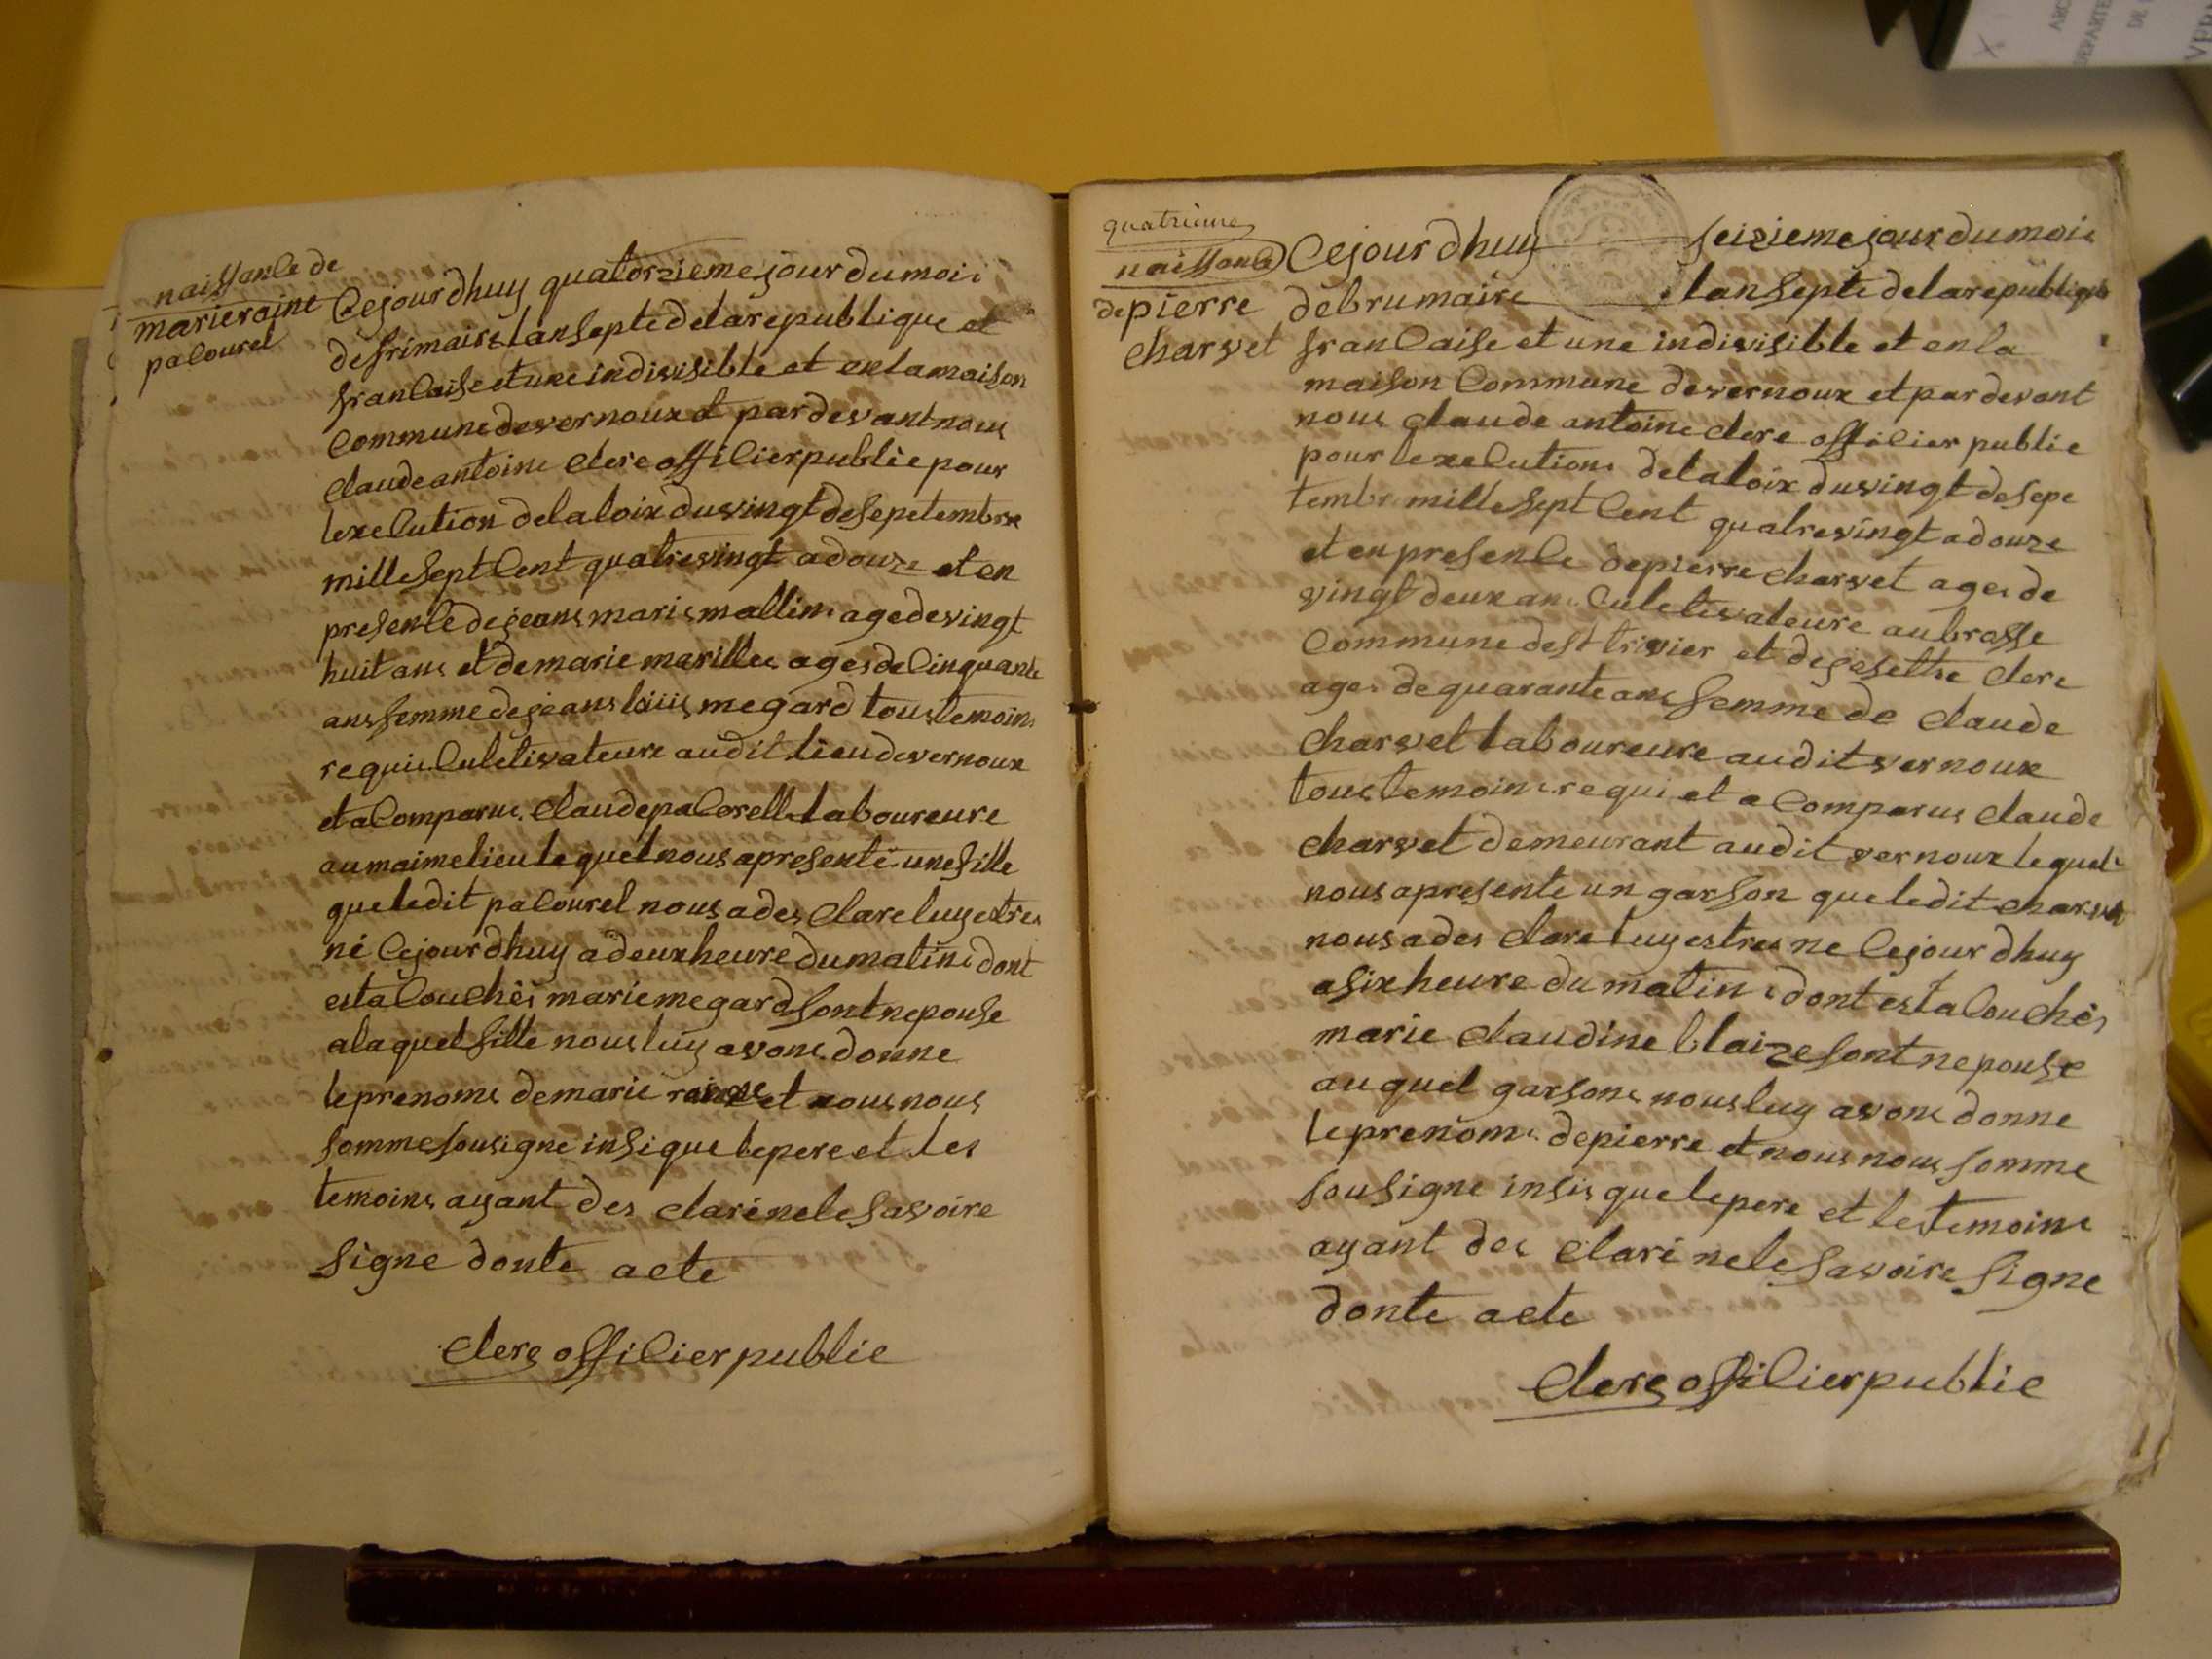 naissance de
marie raine
pacourel
Cejourdhuy quatorzieme jour du mois
de frimaire lan septe de la republique et
francaise et une indivisible et en la maison
Commune de vernoux et par devant nous
claude antoine clerc officier public pour
lexecution de la loix du vingt de sepetembre
mille sept Cent quatre vingt a douze et en
presence de jeans marie mallin age de vingt
huit ans et de marie marillee ages de Cinquante
ans femme de jeans megard tous temoins
requis Culetivateure audit lieu de vernoux
et a Comparus Claude pacorell laboureure
au maime lieu lequel nous a presenté une fille
que ledit pacourel nous a des clare luy estres
né Cejourdhuy a deux heure du matin dont
est acouchés marie megard sont nepouse
a laquel fille nous luy avons donne
le prenoms de marie raine et nous nous
somme sousigne insi que le pere et les
temoins ayant des claré nele savoire
signe donte acte
Clerc officier public
quatrieme
naissance
de pierre
charvet
Cejourdhuy seizieme jour du mois
de brumaire lan septe de la republique
francaise et une indivisible et en la
maison Commune de vernoux et par devant
nous claude antoine clerc officier public
pour lexecutions de la loix du vingt de sepe
tembre mille sept Cent quatre vingt a douze
et en presence de pierre charvet ages de
vingt deux ans Culetivateure au brosse
Commune de st trivier et de josette clerc
ages de quarante ans femme de claude
charvet laboureure audit vernoux
tous temoins requi et a Comparus claude
charvet demeurant audit vernoux lequel
nous a presente un garson que ledit charvet
nous a des clare luy estres ne Cejourdhuy
a six heure du matin dont est acouchés
marie claudine blaize sont nepouse
auquel garsons nous luy avons donne
le prenoms de pierre et nous nous somme
sousigne insis que le pere et les temoins
ayant des claré nele savoire signe
donte acte
Clerc officier public
ARC
DEPARTE
DE
VER